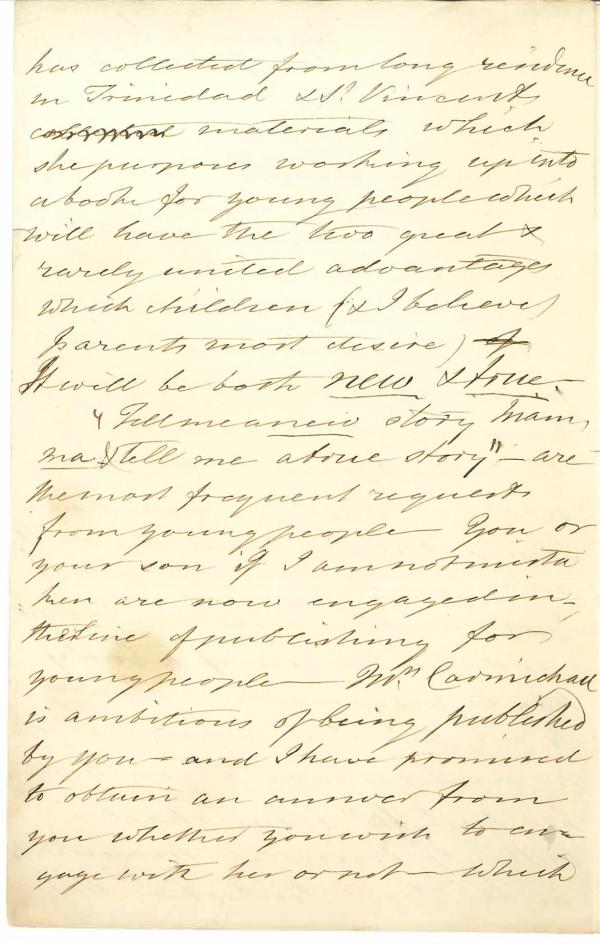 has collected from long residence
in Trinidad & St. Vincents
materials which
she purposes working up into
a booke for young people which
will have the two great &
rarely united advantages
which children (& I believe
parents most desire)
It will be both new & true –
"Tell me a new story Mam,
ma & tell me a true story" – are
the most frequent requests
from young people – You or
your son if I am not mista
ken are now engaged in
the line of publishing for
young people – Mrs. Carmichael
is ambitious of being published
by you – and I have promised
to obtain an answer from
you whether you wish to en=
gage with her or not – which